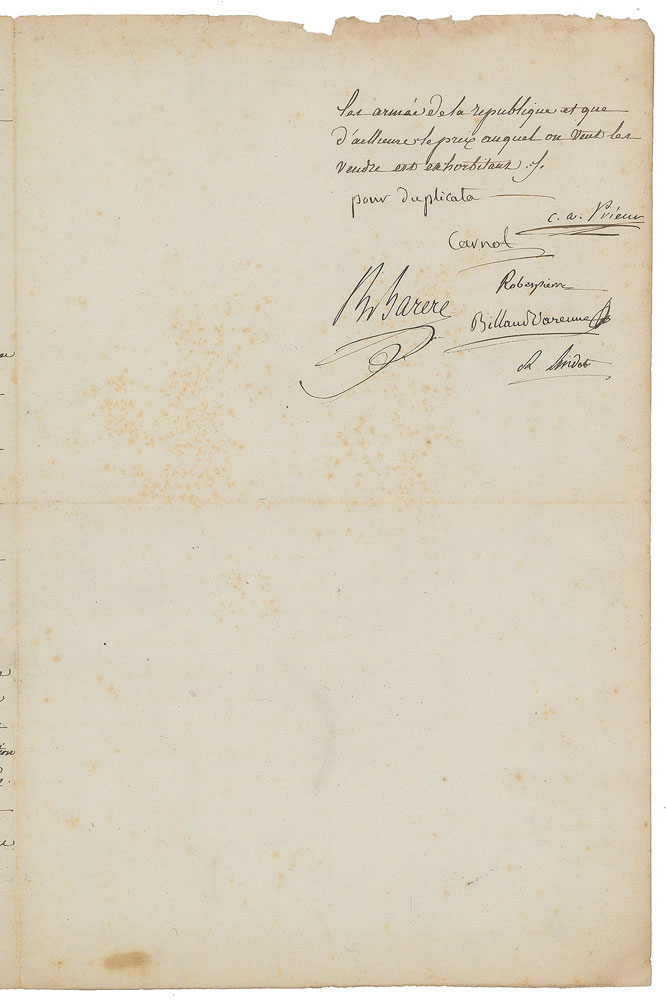 les armée de la republique et que
d'ailleurs le prix auquel on veut les
vendre est exhorbitant ./.
pour duplicata
c. a. Prieur
Carnot
Robespierre
B. Barere
Billaud Varenne
R Lindet